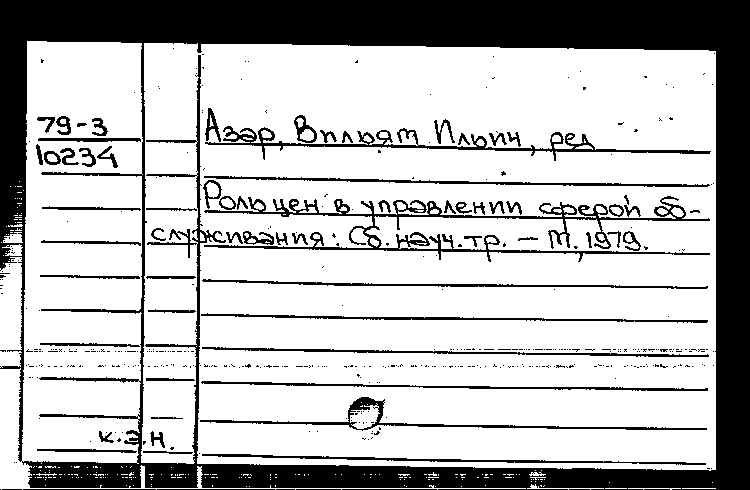 79-3
10234
Азар, Вильям Ильич, ред
Роль цен в управлении сферой об-
служивания: Сб. науч. тр. – М., 1979.
к.э.н.